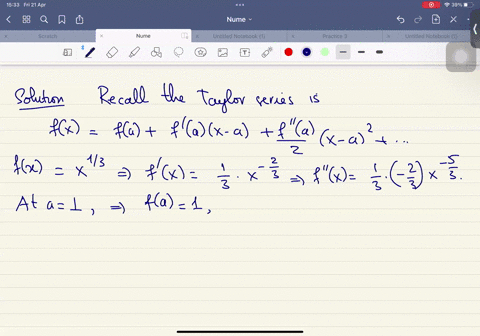 15:33 Fri 21 Apr
39%
Nume
Scratch Nume Untitled Notebook (1) Practice 3 Untitled Notebook (1)
Solution Recall the Taylor series is
f(x) = f(a) + f'(a)(x-a) + f''(a)/2 (x-a)² + ...
f(x) = x^1/3 ⇒ f'(x) = 1/3 · x^-2/3 ⇒ f''(x) = 1/3 · (-2/3) x^-5/3.
At a = 1, ⇒ f(a) = 1,